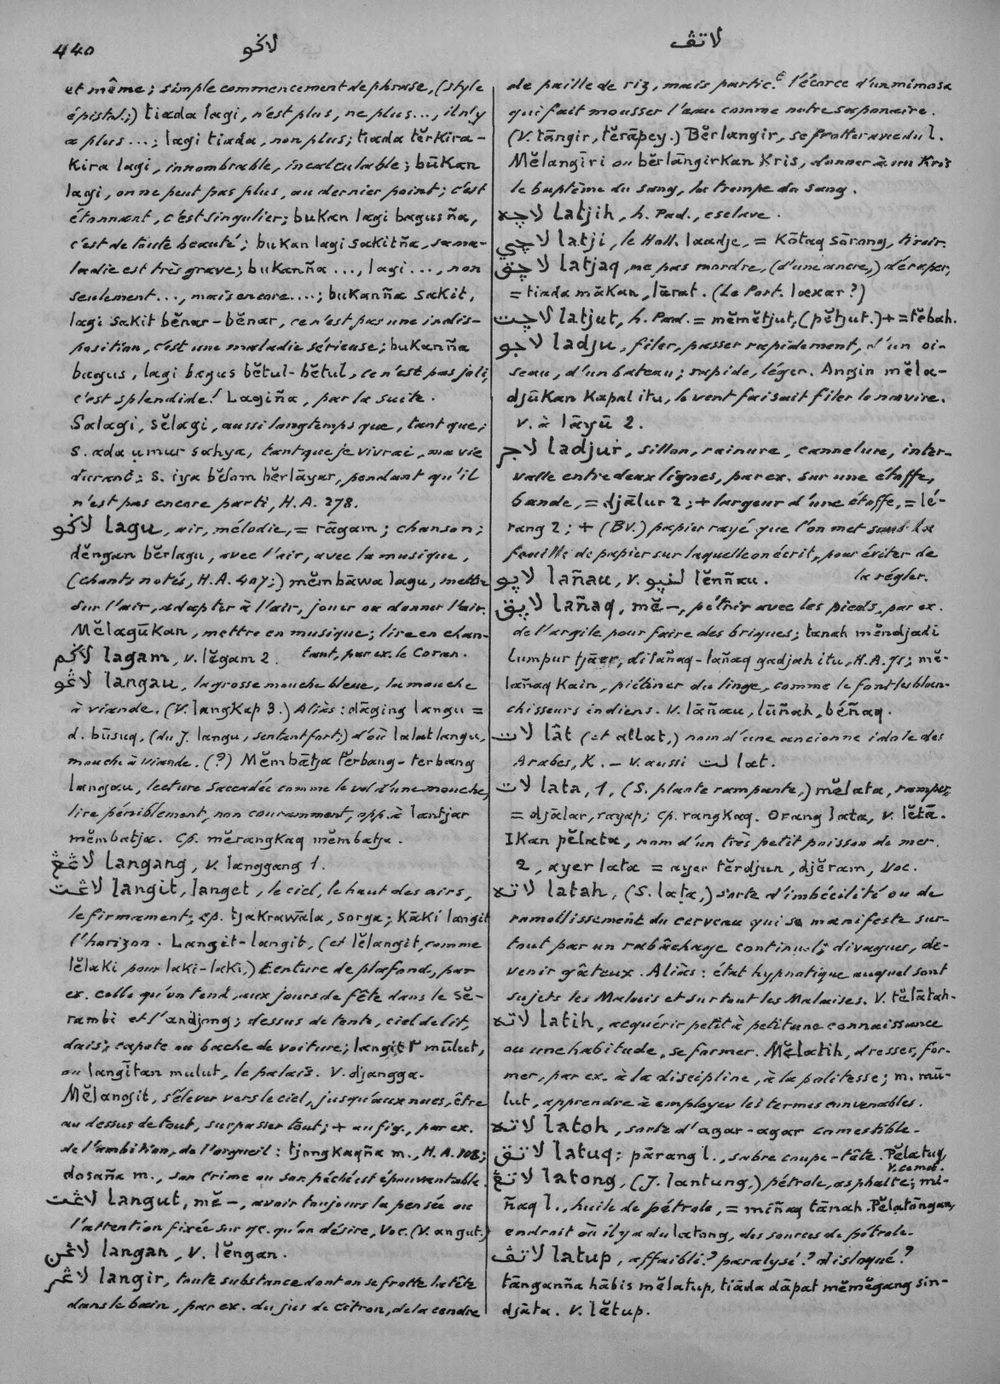 440
لاڬو
لاتڤ
et même; simple commencement de phrase, (style
épistol;) tiada lagi, n'est plus, ne plus..., il n'y
a plus...; lagi tiada, non plus; tiada tĕrkira-
kira lagi, innombrable, incalculable; būkan
lagi, on ne peut pas plus, au dernier point; c'est
étonnant, c'est singulier; bukan lagi bagusña,
c'est de toute beauté; bukan lagi sakitña, sa ma-
ladie est très grave; bukanña ..., lagi ..., non
seulement ..., mais encore ....; bukanña sakit,
lagi sakit bĕnar-bĕnar, ce n'est pas une indis-
position, c'est une maladie sérieuse; bukanña
bagus, lagi bagus bĕtul-bĕtul, ce n'est pas joli,
c'est splendide! Lagiña, par la suite.
Salagi, sĕlagi, aussi longtemps que, tant que;
s. ada umur sahya, tant que je vivrai, ma vie
durant; s. iya bĕlom bĕrlāyar, pendant qu'il
n'est pas encore parti, H.A. 278.
لاڬو lagu, air, mélodie, = rāgam; chanson;
dĕngan bĕrlagu, avec l'air, avec la musique,
(chants notés, H.A. 407;) mĕmbāwa lagu, mettre
sur l'air, adapter à l'air, jouer ou donner l'air.
Mĕlagūkan, mettre en musique; lire en chan-
tant, par ex. le Coran.
لاڬم lagam, v. lĕgam 2.
لاڠو langau, la grosse mouche bleue, la mouche
à viande. (V. langkap 3.) Aliàs: dāging langu =
d. būsuq, (du J. langu, sentent fort;) d'où lalat langu,
mouche à viande. (?) Mĕmbātja tĕrbang-terbang
langau, lecture saccadée comme le vol d'une mouche,
lire péniblement, non couramment, opp. à lantjar
mĕmbatja. Cp. mĕrangkaq mĕmbatja.
لاڠڠ langang, v. langgang 1.
لاڠت langit, langet, le ciel, le haut des airs,
le firmament; cp. tjakrawāla, sorga; kāki langit
l'horizon. Langit-langit, (et lĕlangit, comme
lĕlaki pour laki-laki,) tenture de plafond, par
ex. celle qu'on tend aux jours de fête dans le sĕ-
rambi et l'andjong; dessus de tente, ciel de lit,
dais; capote ou bache de voiture; langit٢ mūlut,
ou langītan mulut, le palais. V. djangga.
Mĕlangit, s'élever vers le ciel, jusqu'aux nues, être
au dessus de tout, surpasser tout; + au fig., par ex.
de l'ambition, de l'orgueil: tjongkaqña m., H.A. 108;
dosaña m., son crime ou son péché est épouvantable.
لاڠت langut, mĕ-, avoir toujours la pensée ou
l'attention fixée sur qc. qu'on désire, Voc. (V. angut.)
لاڠن langan, v. lĕngan.
لاڠر langir, toute substance dont on se frotte la tête
dans le bain, par ex. du jus de citron, de la cendre
de paille de riz, mais partic.t l'écorce d'un mimosa
qui fait mousser l'eau comme notre saponaire.
(V. tāngir, tĕrāpey.) Bĕrlangir, se frotter avec du l.
Mĕlangīri ou bĕrlāngirkan kris, donner à un kris
le baptême du sang, la trempe du sang.
لاچه latjih, h. Pad., esclave.
لاچي latji, le Holl. laadje, = kōtaq sōrong, tiroir.
لاچق latjaq, ne pas mordre, (d'une ancre,) déraper,
= tiada mākan, lārat. (Le Port. laxar?)
لاچت latjut, h. Pad. = mĕmĕtjut, (pĕtjut.) + = tĕbah.
لاجو ladju, filer, passer rapidement, d'un oi-
seau, d'un bateau; rapide, léger. Angin mĕla-
djūkan kapal itu, le vent faisait filer le navire.
v. à lāyū 2.
لاجر ladjur, sillon, rainure, cannelure, inter-
valle entre deux lignes, par ex. sur une étoffe,
bande, = djālur 2; + largeur d'une étoffe, = lé-
rang 2; + (Bv.) papier rayé que l'on met sous la
feuille de papier sur laquelle on écrit, pour éviter de
la régler.
لاڽو lañau, v. لنڽو lĕnñau.
لاڽق lañaq, mĕ-, pétrir avec les pieds, par ex.
de l'argile, pour faire des briques; tanah mĕndjadi
lumpur tjāer, di lañaq-lañaq gadjah itu, H.A. 75; mĕ-
lañaq kain, piétiner du linge, comme le font les blan-
chisseurs indiens. V. lāñau, lūñah, béñaq.
لات lât (et allat,) nom d'une ancienne idole des
Arabes, K. – v. aussi لت lat.
لات lata, 1, (S. plante rampante,) mĕlata, ramper,
= djālar, rayap; cp. rangkaq. Orang lata, v. lĕtā.
Ikan pĕlata, nom d'un très petit poisson de mer.
2, ayer lata = ayer tĕrdjun, djĕram, Voc.
لاته latah, (S. lata,) sorte d'imbécilité ou de
ramollissement du cerveau qui se manifeste sur-
tout par un rabâchage continuel; divagues, de-
venir gâteux. Aliàs: état hypnotique auquel sont
sujets les Malais et surtout les Malaises. V. tĕlātah.
لاته latih, acquérir petit à petit une connaissance
ou une habitude, se former. Mĕlatih, dresser, for-
mer, par ex. à la discipline, à la politesse; m. mū-
lut, apprendre à employer les termes convenables.
لاته latoh, sorte d'agar-agar comestible.
لاتق latuq: pārang l., sabre coupe-tête. Pĕlatuq,
v. comot.
لاتڠ latong, (J. lantung.) pétrole, asphalte; mi-
ñaq l., huile de pétrole, = miñaq tānah. Pĕlatōngan,
endroit où il y a du latong, des sources de pétrole.
لاتڤ latup, affaibli? paralysé? disloqué?
tānganña hābis mĕlatup, tiāda dāpat mĕmĕgang sin-
djāta. V. lĕtup.